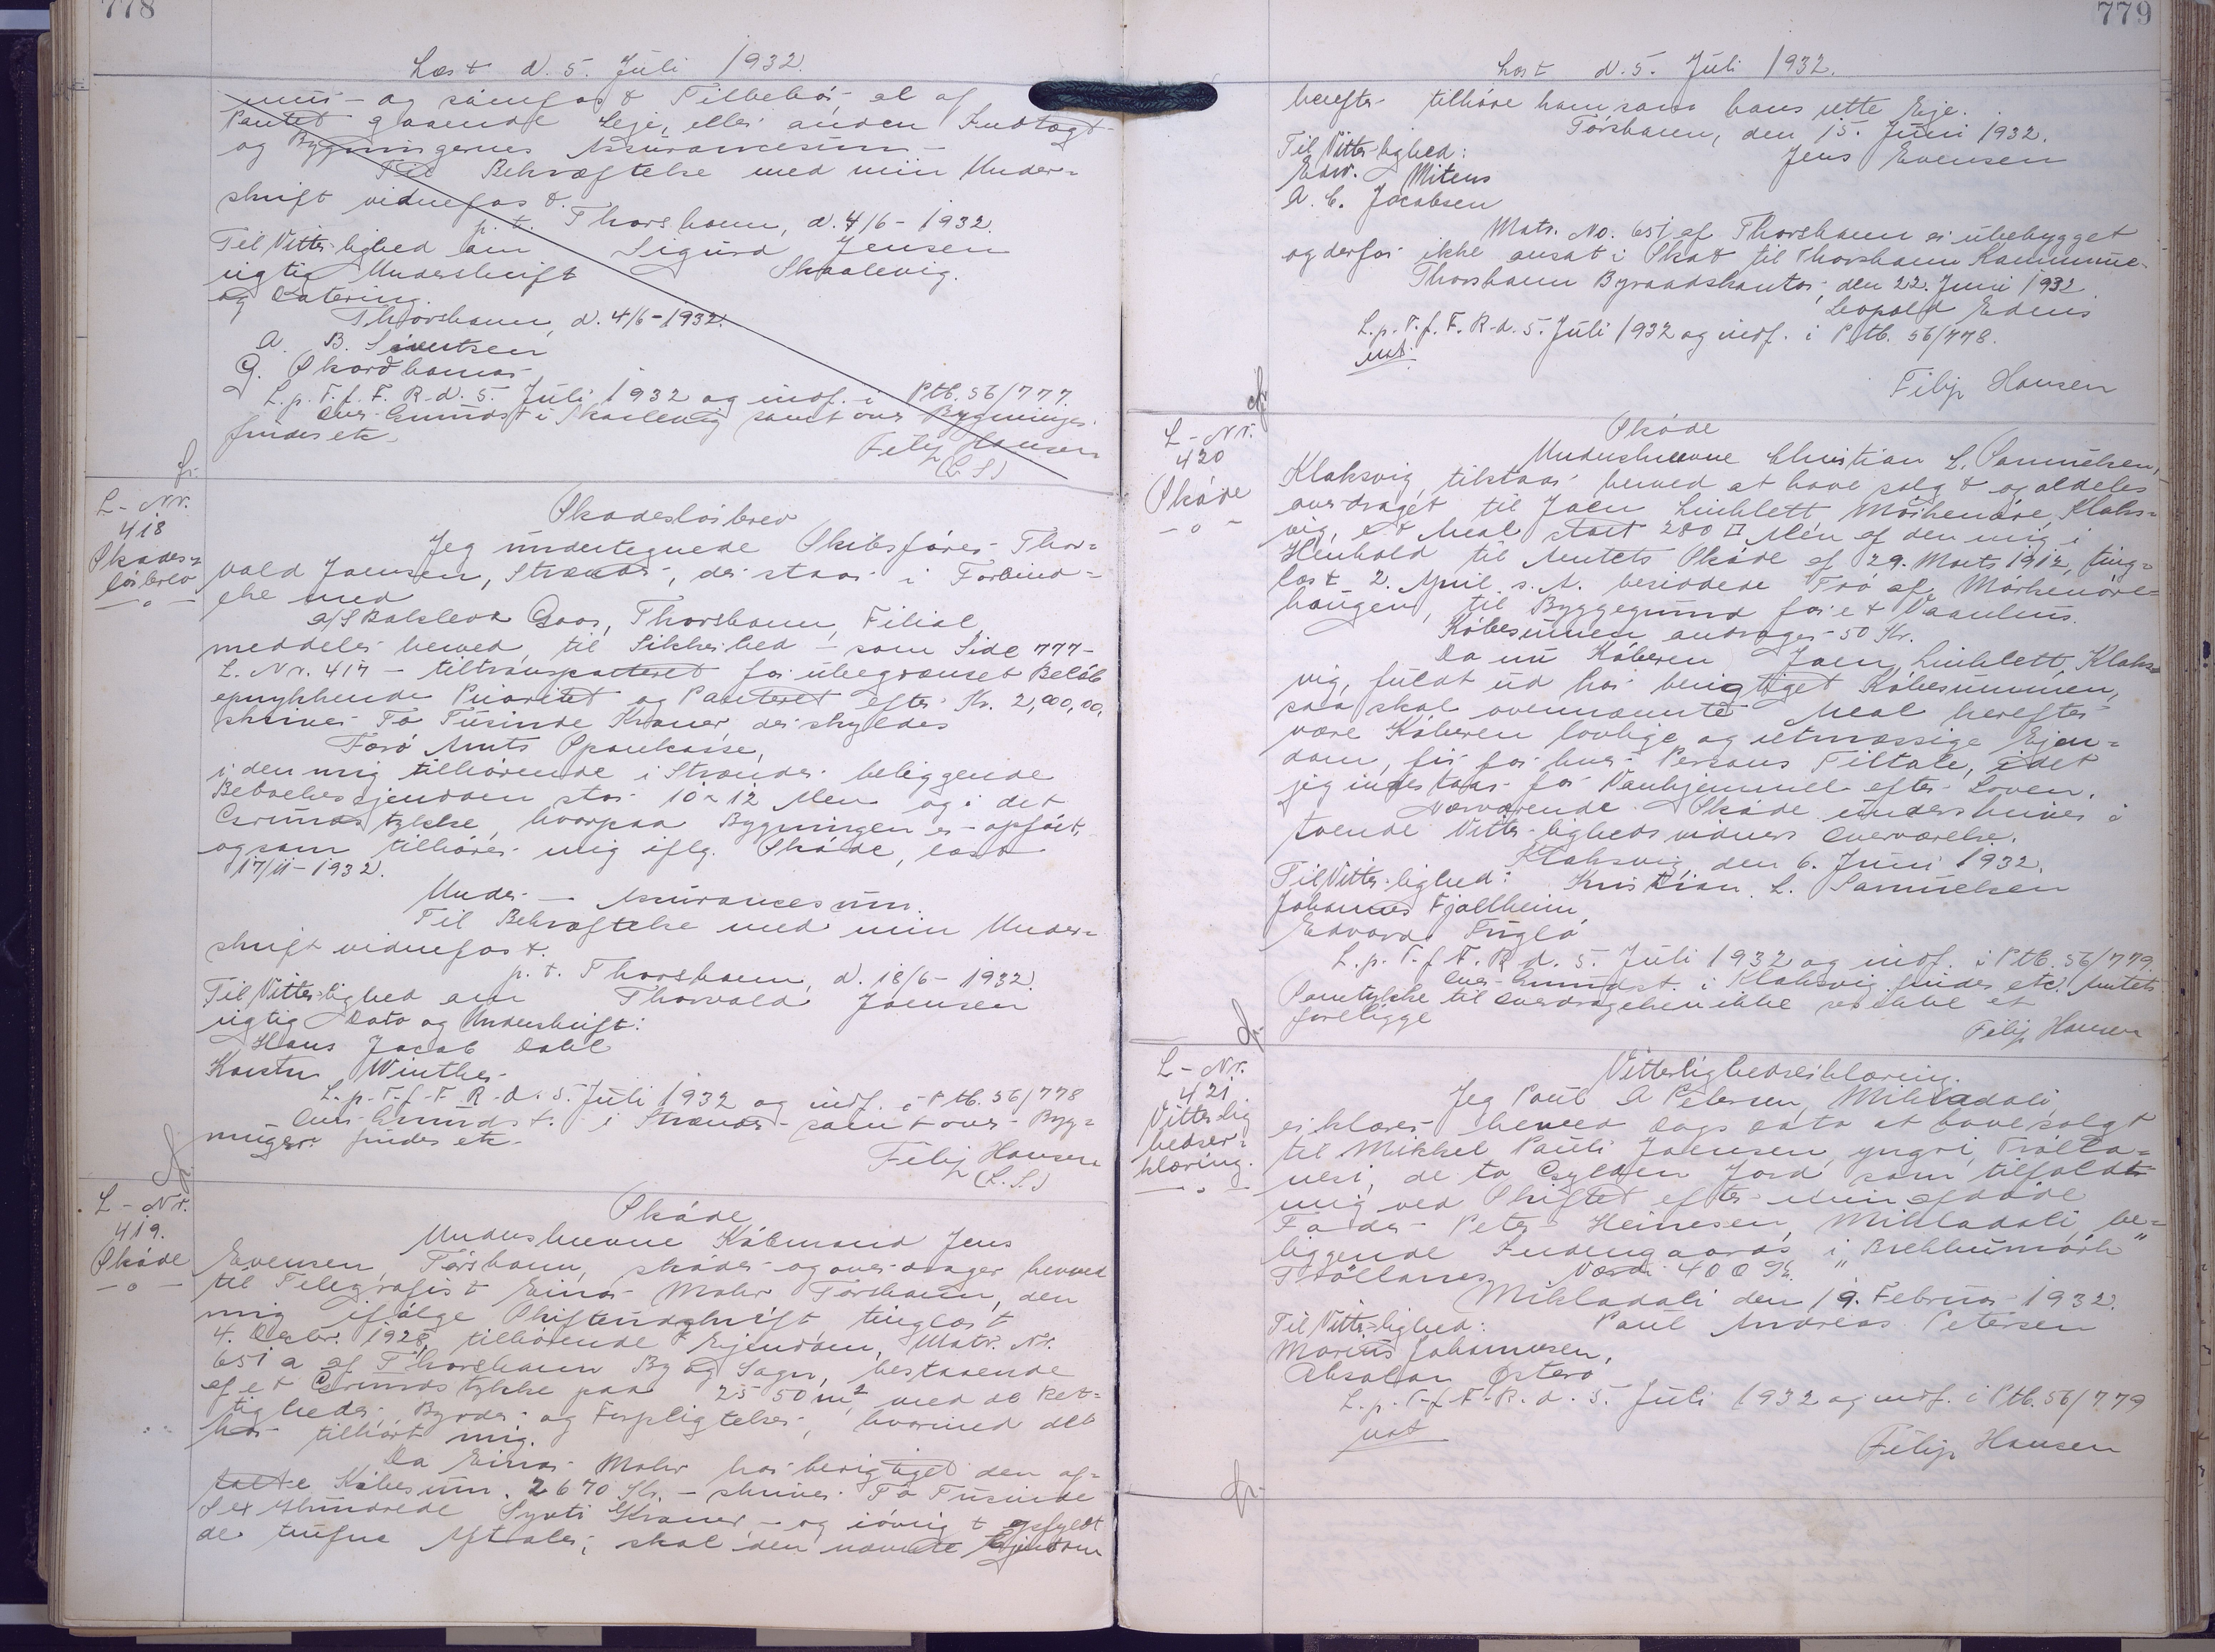 778
Læst d. 5. Juli 1932.
mur- og sømfast Tilbehør, al af
Pantet gaaende Leje, eller anden Indtægt
og Bygningernes Assurancesum -
Til Bekræftelse med min Under-
skrift vidnefast.
p.t. Thorshavn, d. 4/6 - 1932.
Til Vitterlighed om Sigurd Jensen
rigtig Underskrift Skaalevig.
og Datering.
Thorshavn, d. 4/6 - 1932.
A. B. Sivertsen
G. Skarðhamar
L. p. T. f. F. R. d. 5. Juli 1932 og indf. i Ptb. 56/777.
Over Grundst. i Skaalevig samt over Bygninger
findes etc.
Filip Hansen
(L. S.)
L-Nr.
418
Skades-
løsbrev
Skadesløsbrev
Jeg undertegnede Skibsfører Thor-
vald Joensen, Strender, der staar i Forbind-
else med
A/S Balslevs Eftf., Thorshavn, Filial
meddeler herved, til Sikkerhed - som Side 777 -
L. Nr. 417 - tiltransporteret for ubegrænset Beløb
oprykkende Prioritet og Panteret efter Kr. 2,000,00,
skriver To Tusinde Kroner, der skyldes
Færø Amts Sparekasse,
i den mig tilhørende i Strender beliggende
Beboelsesejendom stor 10 x 12 Alen og i det
Grundstykke, hvorpaa Bygningen er opført,
og som tilhører mig iflg. Skøde, læst
17/11 - 1932.
Under - Assurancesum.
Til Bekræftelse med min Under-
skrift vidnefast.
p. t. Thorshavn, d. 18/6 - 1932.
Til Vitterlighed om Thorvald Joensen
rigtig Dato og Underskrift:
Hans Jacob Dahl
Karsten Winther
L. p. T. f. F. R. d. 5. Juli 1932 og indf. i Ptb. 56/778
Over Grundst. i Strender samt over Byg-
ninger findes etc.
Filip Hansen
(L. S.)
L-Nr.
419.
Skøde
Skøde
Underskrevne Købmand Jens
Evensen, Tórshavn, skøder og overdrager herved
til Telegrafist Einar Mohr Tórshavn, den
mig ifølge Skifteudskrift tinglæst
4. Decbr. 1928, tilhørende Ejendom, Matr. Nr.
651 a af Thorshavn By og Sogn, bestaaende
af et Grundstykke paa 2550 m², med de Ret-
tigheder, Byrder og Forpligtelser, hvormed det
har tilhørt mig.
Da Einar Mohr har berigtiget den af-
talte Købesum, 2670 Kr. - skriver To Tusinde
Sex Hundrede Syvti Kroner - og iøvrigt opfyldt
de trufne Aftaler, skal den nævnte Ejendom
779
Læst d. 5. Juli 1932.
herefter tilhøre ham som hans rette Eje.
Tórshavn, den 15. Juni 1932.
Til Vitterlighed: Jens Evensen
Edw. Mitens
A. C. Jacobsen
Matr. No. 651 af Thorshavn er ubebygget
og derfor ikke ansat i Skat til Thorshavn Kommune.
Thorshavn Byraadskontor, den 22. Juni 1932
Leopold Edens
L. p. T. f. F. R. d. 5. Juli 1932 og indf. i Ptb. 56/778.
Filip Hansen
L-Nr.
420
Skøde
Skøde
Underskrevne Christian L. Samuelsen,
Klaksvig, tilstaar herved at have solgt og aldeles
overdraget til Joen Linklett Mörkenöre, Klaks-
vig, et Areal stort 280 □ Alen af den mig i
Henhold til Amtets Skøde af 29. Marts 1912, ting-
læst 2. April s. A. besiddede Trö af Mörkenöre-
haugen, til Byggegrund for et Vaanhus.
Købesummen andrager 50 Kr.
Da nu Køberen Joen Linklett, Klaks-
vig, fuldt ud har berigtiget Købesummen,
saa skal ovennævnte Areal herefter
være Køberen lovlige og retmæssige Ejen-
dom, fri for hver Persons Tiltale, idet
jeg indestaar for Vanhjemmel efter Loven.
Nærværende Skøde underskrives i
tvende Vitterlighedsvidners Overværelse.
Klaksvig, den 6. Juni 1932.
Til Vitterlighed: Kristian L. Samuelsen
Johannes Fjallheim,
Edvard Fuglö
L. p. T. f. F. R. d. 5. Juli 1932 og indf. i Ptb. 56/779.
Over Grundst. i Klaksvig findes etc. Amtets
Samtykke til Overdragelsen ikke ses at
foreligge
Filip Hansen
L-Nr.
421
Vitterlig
hedser-
klæring.
Vitterlighedserklæring.
Jeg Poul A Petersen, Mikladali,
erklærer herved Dags Dato at have solgt
til Mikkel Pauli Joensen, yngri, Trölla-
nesi, de to Gylden Jord som tilfaldt
mig ved Skiftet efter min afdøde
Fader Peter Heinesen, Mikladali, be-
liggende Indengaards i "Brekkumörk"
Tröllanes. Værdi 400 Kr.
Mikladali den 19. Februar 1932.
Til Vitterlighed: Paul Andreas Petersen
Marius Johannesen,
Absalon Østerø
L. p. T. f. F. R. d. 5. Juli 1932 og indf. i Ptb. 56/779
Filip Hansen